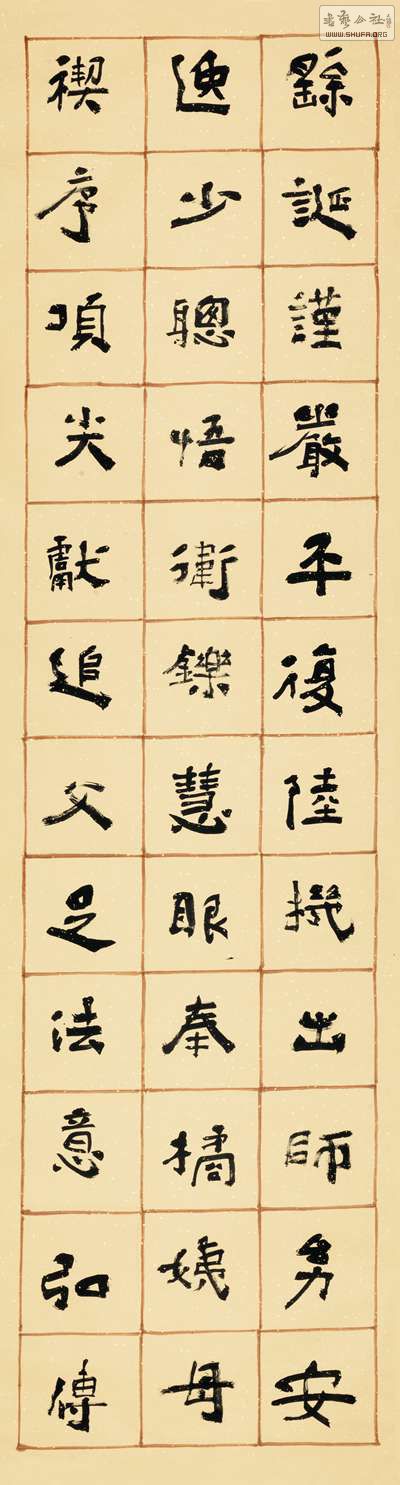 書藝公社
WWW.SHUFA.ORG
繇誕謹嚴平復陸機出師幼安
逸少聰悟衛鑠慧眼奉橘姨母
禊序頂尖獻追父足法意弘傳